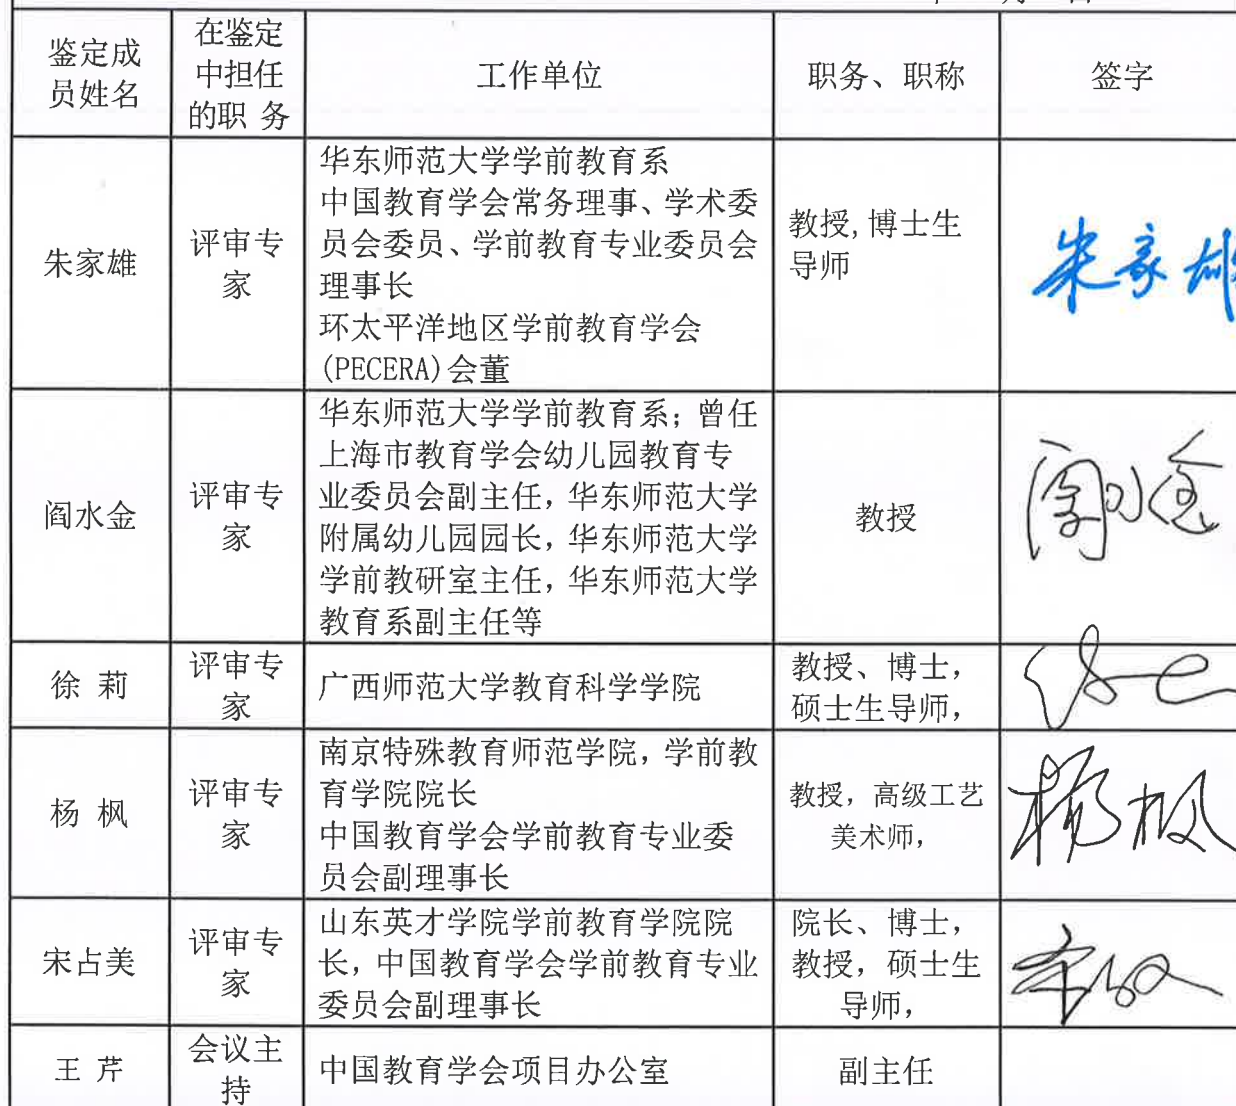 月 日
鉴定成
员姓名
在鉴定
中担任
的职 务
工作单位
职务、职称
签字
朱家雄
评审专
家
华东师范大学学前教育系
中国教育学会常务理事、学术委
员会委员、学前教育专业委员会
理事长
环太平洋地区学前教育学会
(PECERA)会董
教授,博士生
导师
朱家雄
阎水金
评审专
家
华东师范大学学前教育系;曾任
上海市教育学会幼儿园教育专
业委员会副主任,华东师范大学
附属幼儿园园长,华东师范大学
学前教研室主任,华东师范大学
教育系副主任等
教授
阎水金
徐 莉
评审专
家
广西师范大学教育科学学院
教授、博士,
硕士生导师,
杨 枫
评审专
家
南京特殊教育师范学院,学前教
育学院院长
中国教育学会学前教育专业委
员会副理事长
教授,高级工艺
美术师,
杨枫
宋占美
评审专
家
山东英才学院学前教育学院院
长,中国教育学会学前教育专业
委员会副理事长
院长、博士,
教授,硕士生
导师,
王 芹
会议主
持
中国教育学会项目办公室
副主任